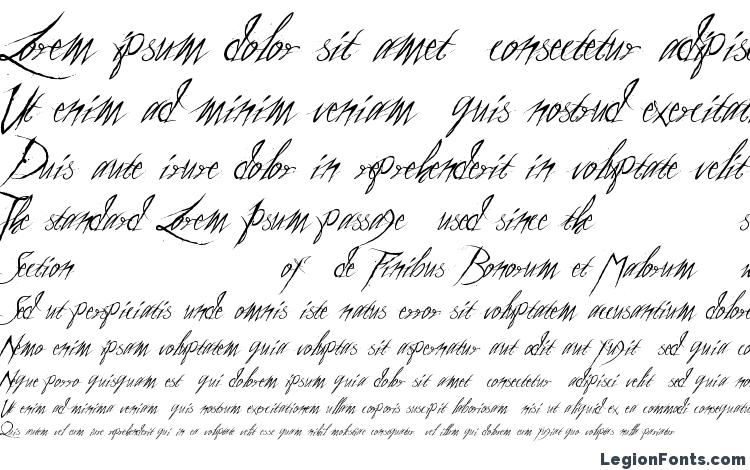 Lorem ipsum dolor sit amet consectetur adipisc
Ut enim ad minim veniam quis nostrud exercitat
Duis aute irure dolor in reprehenderit in voluptate velit
The standard Lorem Ipsum passage used since the s
Section of de Finibus Bonorum et Malorum
Sed ut perspiciatis unde omnis iste natus error sit voluptatem accusantium dolore
Nemo enim ipsam voluptatem quia voluptas sit aspernatur aut odit aut fugit sed quia co
Neque porro quisquam est qui dolorem ipsum quia dolor sit amet consectetur adipisci velit sed quia n
Ut enim ad minima veniam quis nostrum exercitationem ullam corporis suscipit laboriosam nisi ut aliquid ex ea commodi consequatu
Quis autem vel eum iure reprehenderit qui in ea voluptate velit esse quam nihil molestiae consequatur vel illum qui dolorem eum fugiat quo voluptas nulla pariatur
LegionFonts.com